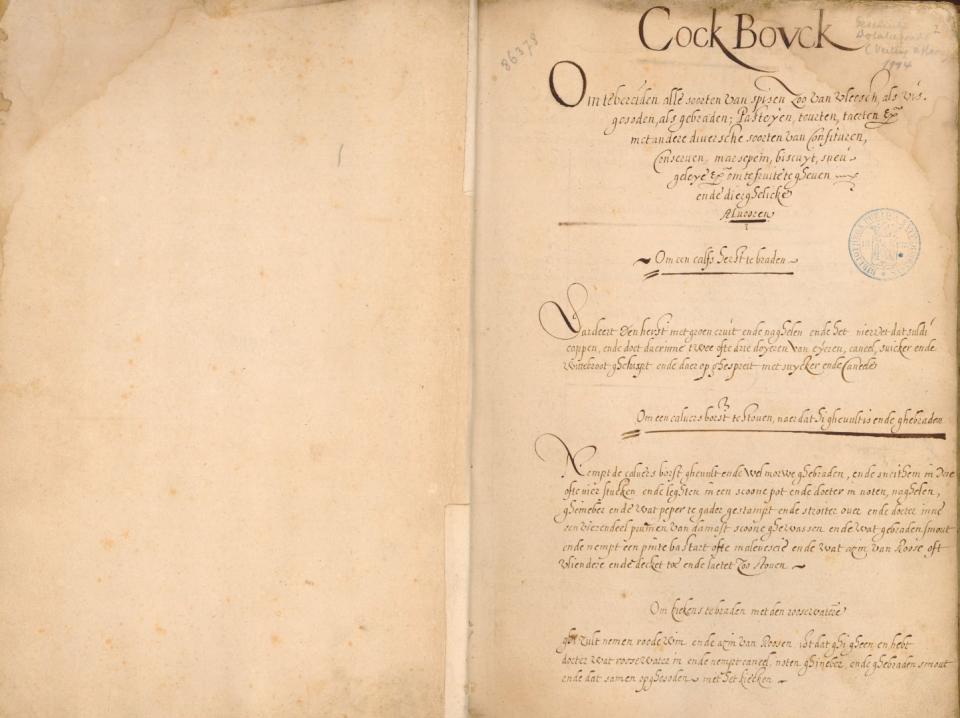 Cock Bovck
86378
1994
Om te bereiden alle soorten van spijsen Zoo van vleesch, als vis.
gesoden, als gebraden; Pasteyen, tourten, taerten &
met andere diversche soorten van Confituren,
Conserven, marsepein, biscuyt,
geleye & om te fruite te gheven
ende dierghelicke
Om een calfs herst te braden
Lardeert den herst met groen cruit ende naghelen ende het niervet dat suldi
coppen, ende doet daerinne twee ofte drie doyeren van eyeren, caneel, suicker ende
wittebroot ghe ende daer op ghespreit met suycker ende Caneele
3
Om een calvers borst te stoven, naer dat si ghevult is ende ghebraden
Nempt de calvers borst ghevult ende wel morwe ghebraden, ende sneithem in drie
ofte vier stucken ende leghten in een scoone pot ende doeter in noten, naghelen,
ghineber ende wat peper te gader gestampt ende stroiter over ende doeter inne
een vierendeel pruimen van damast scoone ghewassen ende wat gebraden smout
ende nempt een pinte bastart ofte malevescie ende wat azin van Roose oft
vliendere ende decket toe ende laetet Zoo stoven
Om kiekens te braden met den roosewatere
ghi zult nemen roode wijn ende azin van Roosen ist dat ghi gheen en hebt
doeter wat roosewater in ende nempt caneel, noten ghineber, ende ghebraden smout
ende dat samen opghesoden met het kiecken